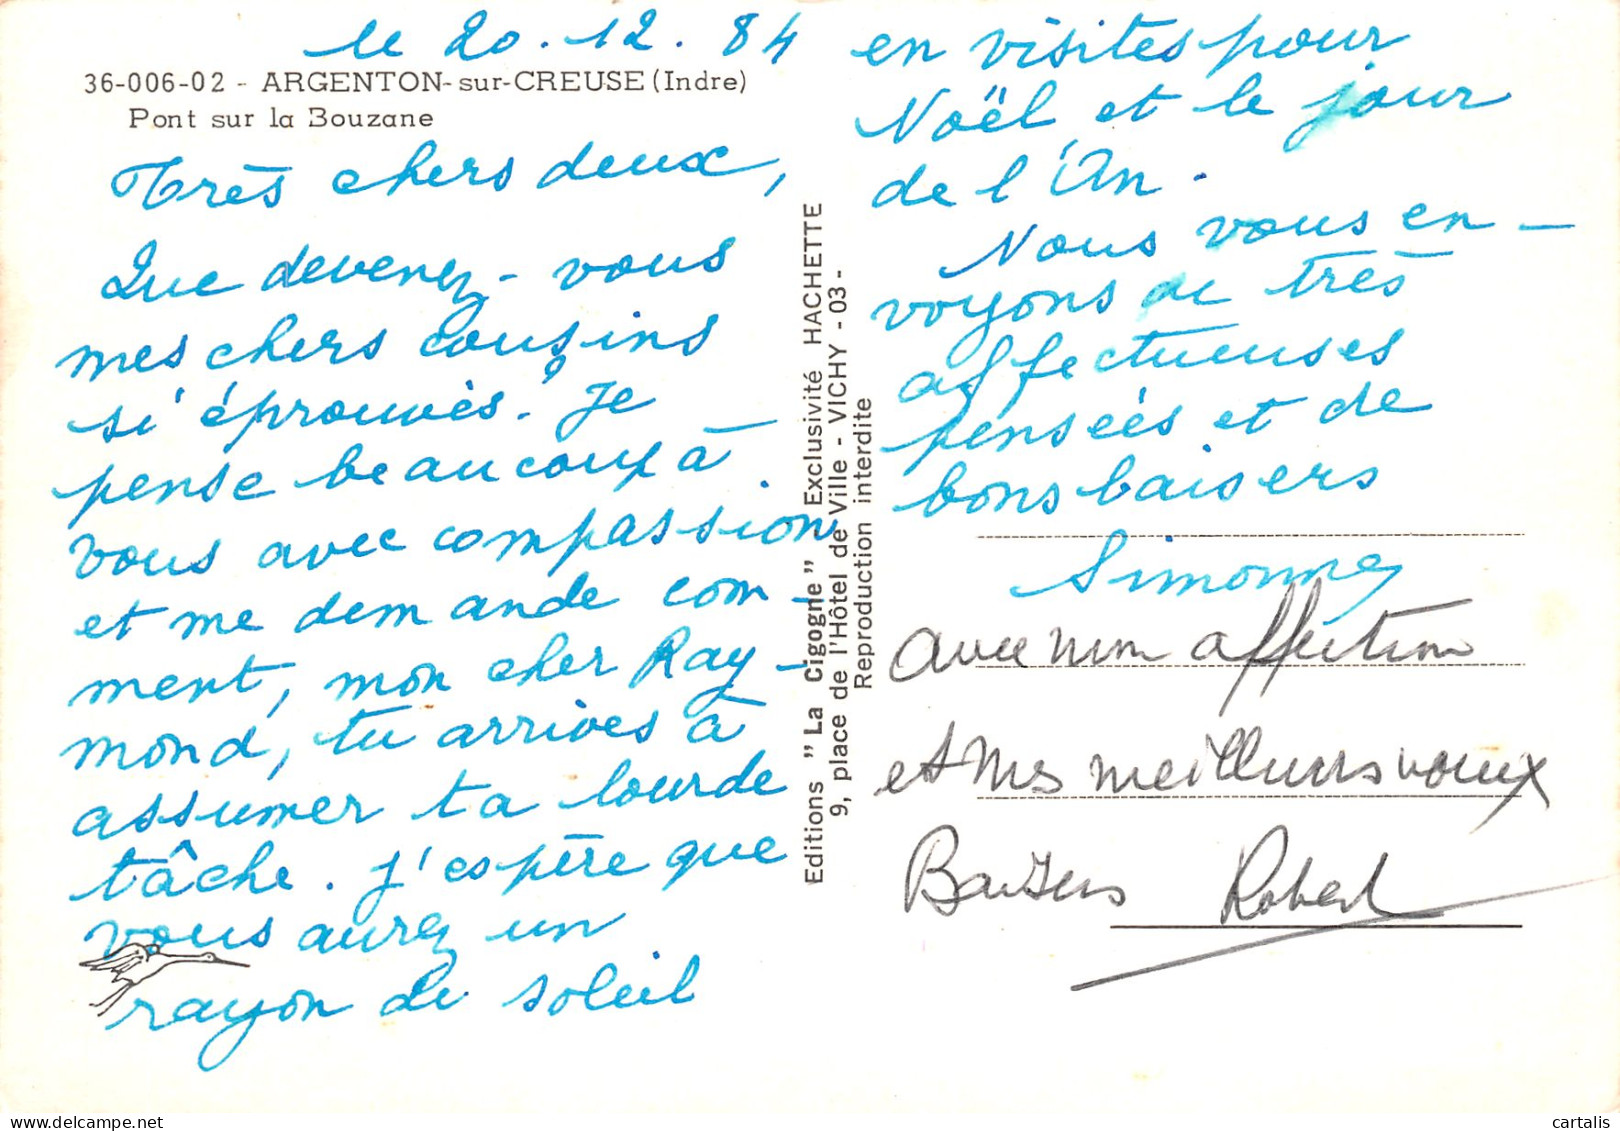 le 20.12.84
36-006-02 - ARGENTON-sur-CREUSE (Indre)
Pont sur la Bouzane
Très chers deux,
Que devenez-vous
mes chers cousins
si éprouvés. Je
pense beaucoup à
vous avec compassion
et me demande com-
ment, mon cher Ray-
mond, tu arrives à
assumer ta lourde
tâche. J'espère que
vous aurez un
rayon de soleil
Editions "La Cigogne" Exclusivité HACHETTE
9, place de l'Hôtel de Ville - VICHY - 03 -
Reproduction interdite
en visites pour
Noël, et le jour
de l'An.
Nous vous en-
voyons de très
affectueuses
pensées et de
bons baisers
Simonne
avec mon affection
et mes meilleurs voeux
Baisers Robert
cartalis